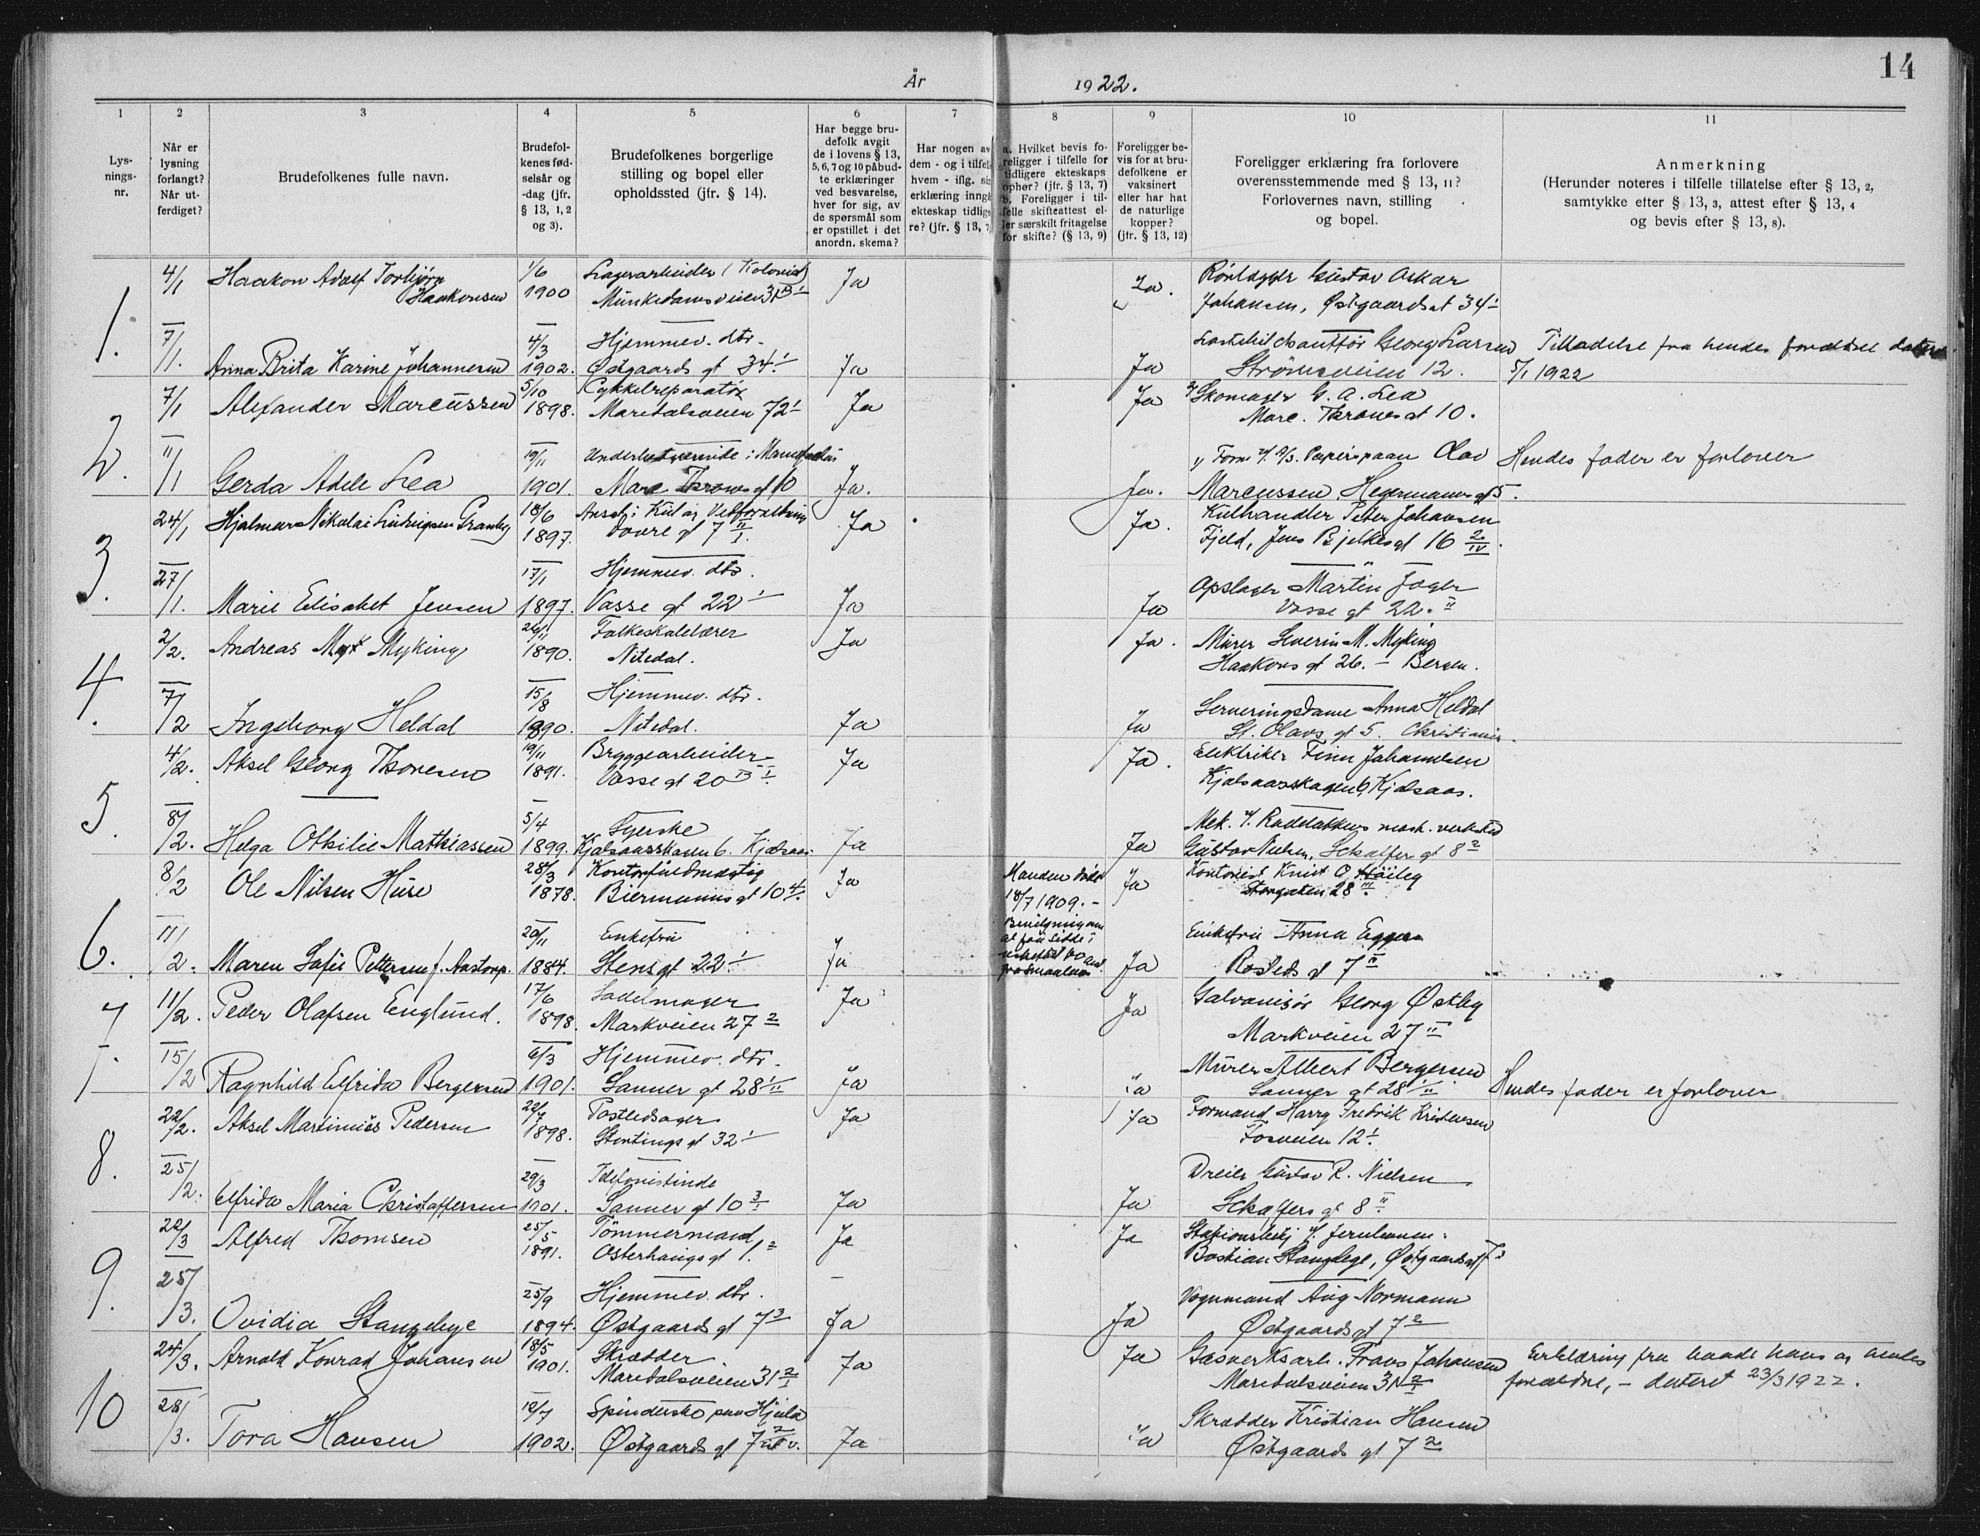 14
År 1922.
1 2 3 4 5 6 7 8 9 10 11
Lys-
nings-
nr.
Når er
lysning
forlangt?
Når ut-
ferdiget?
Brudefolkenes fulle navn.
Brudefol-
kenes fød-
selsår og
-dag (jfr.
§ 13, 1, 2
og 3).
Brudefolkenes borgerlige
stilling og bopel eller
opholdssted (jfr. § 14).
Har begge bru-
defolk avgit
de i lovens § 13,
5, 6, 7 og 10 påbud-
te erklæringer
ved besvarelse,
hver for sig, av
de spørsmål som
er opstillet i det
anordn. skema?
Har nogen av
dem - og i tilfel
hvem - iflg. si
erklæring inng
ekteskap tidlig
re? (jfr. § 13, 7
a. Hvilket bevis fo-
religger i tilfelle for
tidligere ekteskaps
ophør? (jfr. § 13, 7)
b. Foreligger i til-
felle skifteattest el-
ler særskilt fritagelse
for skifte? (§ 13, 9)
Foreligger be-
vis for at bru-
defolkene er
vaksinert
eller har hat
de naturlige
kopper?
(jfr. § 13, 12)
Foreligger erklæring fra forlovere
overensstemmende med § 13, 11?
Forlovernes navn, stilling
og bopel.
Anmerkning
(Herunder noteres i tilfelle tillatelse efter § 13, 2,
samtykke efter § 13, 3, attest efter § 13, 4
og bevis efter § 13, 8).
1.
4/1 Haakon Adolf Torbjørn 1/6 Lagerarbeider (Kolonial) Ja Ja. Rörlægger Gustav Oskar
Haakonsen 1900 Munkedamsveien 31 Johansen, Østgaardsgt 34 I
7/1. Anna Brita Karine Johannesen 4/3 1902. Hjemmev. dtr. Ja Ja Georg Larsen Tilladelse fra hendes forældre dateret
Østgaards gt 34 I Strømsveien 12. 5/1 1922
2.
7/1 Alexander Marcussen 5/10 1898. Cykkelreparatör Ja Ja Skomager G. A. Lea
Maridalsveien 72 I Marc. Thranes gt 10.
11/1 Gerda Adele Lea 19/11 1901. Ja. Ja. Olav Hendes fader er forlover
Marc Thranes gt 10 Marcussen, Hegermanns gt 5.
3.
24/1 Hjalmar Nikolai Ludvigsen Granly 18/6 1897. Ansat i Kul og Vedforsyning Ja Ja. Kulhandler Peter Johansen
Dovre gt 7 Fjeld, Jens Bjelkes gt 16
27/1. Marie Elisabet Jensen 17/1 1897. Hjemmev. dtr. Ja Ja Opslager Martin Jager
Vosse gt 22 I Vosse gt 22. II
4.
2/2. Andreas Myking 26/11 1890. Folkeskolelærer Ja Ja. Murer Severin M. Myking
Nitedal. Haakons gt 26. – Bergen.
7/2 Ingeborg Heldal 15/8 1890. Hjemmev. dtr. Ja Ja Serveringsdame Anna Heldal
Nitedal. St. Olavs gt 5. Christiania.
5.
4/2. Aksel Georg Thoresen 19/11 1891. Bryggearbeider Ja Ja. Elektriker Finn Johannesen
Vosse gt 20 Kjelsaasskogen 6, Kjelsaas.
8/2. Helga Othilie Mathiassen 5/4 1899. Syerske Ja Ja Mek. v. mek. verksted
Kjelsaasskogen 6. Kjelsaas. Gustav Nielsen, Schaffer gt 8 2
6.
8/2 Ole Nilsen Hure 28/3 1878. Kontorfuldmægtig Ja Manden död Ja Kontorist Knut O.
Biermanns gt 10 4/ 18/7 1909. – Storgaten 28 III.
11/2. Maren Sofie Pettersen f. Aastorp. 20/11 1884. Enkefru Ja Bevilgning om Ja Enkefru Anna Egger
Stens gt 22 I at faa sidde i Rosteds gt 7 II
7.
11/2. Peder Olafsen Englund. 17/6 1898. Sadelmager Ja Ja Galvanisör Georg Østby
Markveien 27 2 Markveien 27 II
15/2 Ragnhild Elfrida Bergersen 6/3 1901. Hjemmev. dtr. Ja Ja Murer Albert Bergersen
Sanner gt 28 I/II Sanner gt 28 I/II Hendes fader er forlover
8.
22/2. Aksel Martinius Pedersen 22/7 1898. Postledsager Ja Ja Formand Harry Fredrik Kristensen
Stortings gt 32 I Fosveien 12 I.
25/2. Elfrida Maria Christoffersen 29/3 1901. Telefonistinde Ja Ja Dreier Gustav R. Nielsen
Sanner gt 10 3/I Schaffers gt 8 II
9.
22/3 Alfred Thomsen 25/5 1891. Tömmermand Ja Ja Stationsbetj v. jernbanen.
Osterhaugs gt 1. 2 Bastian Stangebye, Østgaards gt 7 3
25/3. Ovidia Stangebye 25/9 1894. Hjemmev. dtr. Ja Ja Vognmand Aug Normann
Østgaards gt 7 3 Østgaards gt 7 2
10
24/3. Arnold Konrad Johansen 18/5 1901. Skrædder Ja Ja Gasverksarb. Frans Johansen Erklæring fra baade hans og hendes
Maridalsveien 31 2/I Maridalsveien 31 2/I forældre, – dateret 23/3 1922.
28/3. Tora Hansen 12/7 1902. Spinderske paa Hjula Ja Ja Skrædder Kristian Hansen
Østgaards gt 7 2 Østgaards gt 7 2